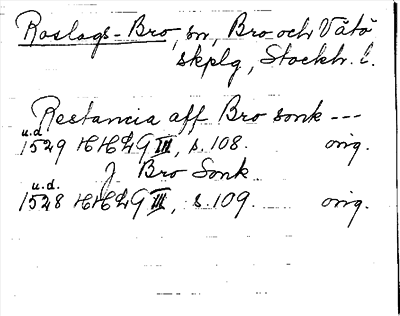 Roslags-Bro, sn, Bro och Vätö
skplg, Stockh. l.
Restancia aff Bro sonk ---
u.d.
1529 HH29 III, s. 108. orig.
J Bro Sonk
u.d.
1528 HH29 III, s. 109. orig.